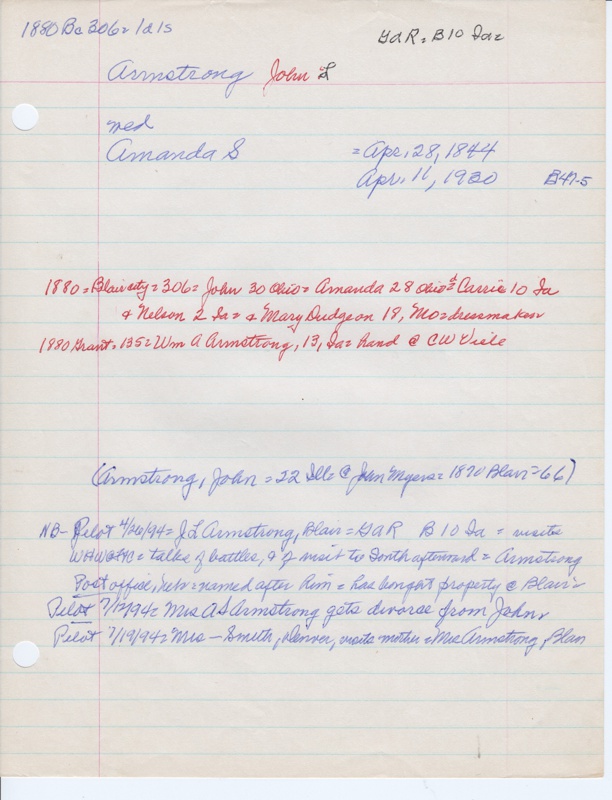 1880 Bc 306 = 1d 1s
GAR = B 10 Ia =
Armstrong John L
med
Amanda S = Apr. 28, 1844
Apr. 11, 1930 B47-5
1880 = Blair city = 306 = John 30 Ohio = Amanda 28 Ohio = & Carrie 10 Ia
& Nelson 2 Ia = & Mary Dudgeon 18, Mo = dressmaker
1880 Grant = 135 = Wm A Armstrong, 13, Ia = hand @ CW Viele
(Armstrong, John = 22 Ill @ John Myers = 1870 Blair = 66)
NB - Pilot 4/26/94 = J L Armstrong, Blair = GAR B 10 Ia = visits
= talks of battles, & of visit to South afterward = Armstrong
Post office, Neb = named after him = has bought property @ Blair =
Pilot 7/12/94 = Mrs AS Armstrong gets divorce from John
Pilot 7/19/94 = Mrs — Smith, Denver, visits mother = Mrs Armstrong, Blair